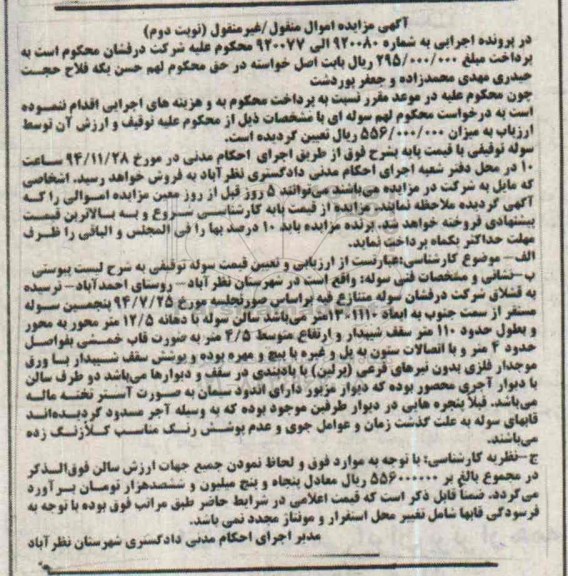 آگهی مزایده اموال منقول/غیرمنقول (نوبت دوم)
در پرونده اجرایی به شماره ۹۲۰۰۸۰ الی ۹۲۰۰۷۷ محکوم علیه شرکت درفشان محکوم است به
پرداخت مبلغ ۲۹۵/۰۰۰/۰۰۰ ریال بابت اصل خواسته در حق محکوم لهم حسن یکه فلاح حجت
حیدری مهدی محمدزاده و جعفر پوردشت
چون محکوم علیه در موعد مقرر نسبت به پرداخت محکوم به و هزینه های اجرایی اقدام ننموده
است به درخواست محکوم لهم سوله ای با مشخصات ذیل از محکوم علیه توقیف و ارزش آن توسط
ارزیاب به میزان ۵۵۶/۰۰۰/۰۰۰ ریال تعیین گردیده است.
سوله توقیفی با قیمت پایه بشرح فوق از طریق اجرای احکام مدنی در مورخ ۹۴/۱۱/۲۸ ساعت
۱۰ در محل دفتر شعبه اجرای احکام مدنی دادگستری نظرآباد به فروش خواهد رسید. اشخاصی
که مایل به شرکت در مزایده می‌باشند می‌توانند ۵ روز قبل از روز معین مزایده اموالی را که
آگهی گردیده ملاحظه نمایند. مزایده از قیمت پایه کارشناسی شروع و به بالاترین قیمت
پیشنهادی فروخته خواهد شد. برنده مزایده باید ۱۰ درصد بها را فی المجلس و الباقی را ظرف
مهلت حداکثر یکماه پرداخت نماید.
الف- موضوع کارشناسی: عبارتست از ارزیابی و تعیین قیمت سوله توقیفی به شرح لیست پیوستی
ب-نشانی و مشخصات فنی سوله: واقع است در شهرستان نظرآباد- روستای احمدآباد- نرسیده
به قشلاق شرکت درفشان سوله متنازع فیه براساس صورتجلسه مورخ ۹۴/۷/۲۵ پنجمین سوله
مستقر از سمت جنوب به ابعاد ۱۱۱۰×۱۳متر می‌باشد. سالن سوله با دهانه ۱۲/۵ متر محور به محور
و بطول حدود ۱۱۰ متر سقف شیبدار و ارتفاع متوسط ۴/۵ متر به صورت قاب خمشی بفواصل
حدود ۴ متر و با اتصالات ستون به پل و غیره با پیچ و مهره بوده و پوشش سقف شیبدار با ورق
موجدار فلزی بدون تیرهای فرعی (پرلین) با بادبندی در سقف و دیوارها می‌باشد دو طرف سالن
با دیوار آجری محصور بوده که دیوار مزبور دارای اندود سیمان به صورت آستر تخته ماله
می‌باشد. قبلا پنجره هایی در دیوار طرفین موجود بوده که به وسیله آجر مسدود گردیده‌اند
قابهای سوله به علت گذشت زمان و عوامل جوی و عدم پوشش رنگ مناسب کلاً زنگ زده
می‌باشند.
ج-نظریه کارشناسی: با توجه به موارد فوق و لحاظ نمودن جمیع جهات ارزش سالن فوق‌الذکر
در مجموع بالغ بر ۵۵۶۰۰۰۰۰۰ ریال معادل پنجاه و پنج میلیون و ششصدهزار تومان برآورد
می‌گردد. ضمناً قابل ذکر است که قیمت اعلامی در شرایط حاضر طبق مراتب فوق بوده با توجه به
فرسودگی قابها شامل تغییر محل استقرار و مونتاژ مجدد نمی باشد.
مدیر اجرای احکام مدنی دادگستری شهرستان نظرآباد